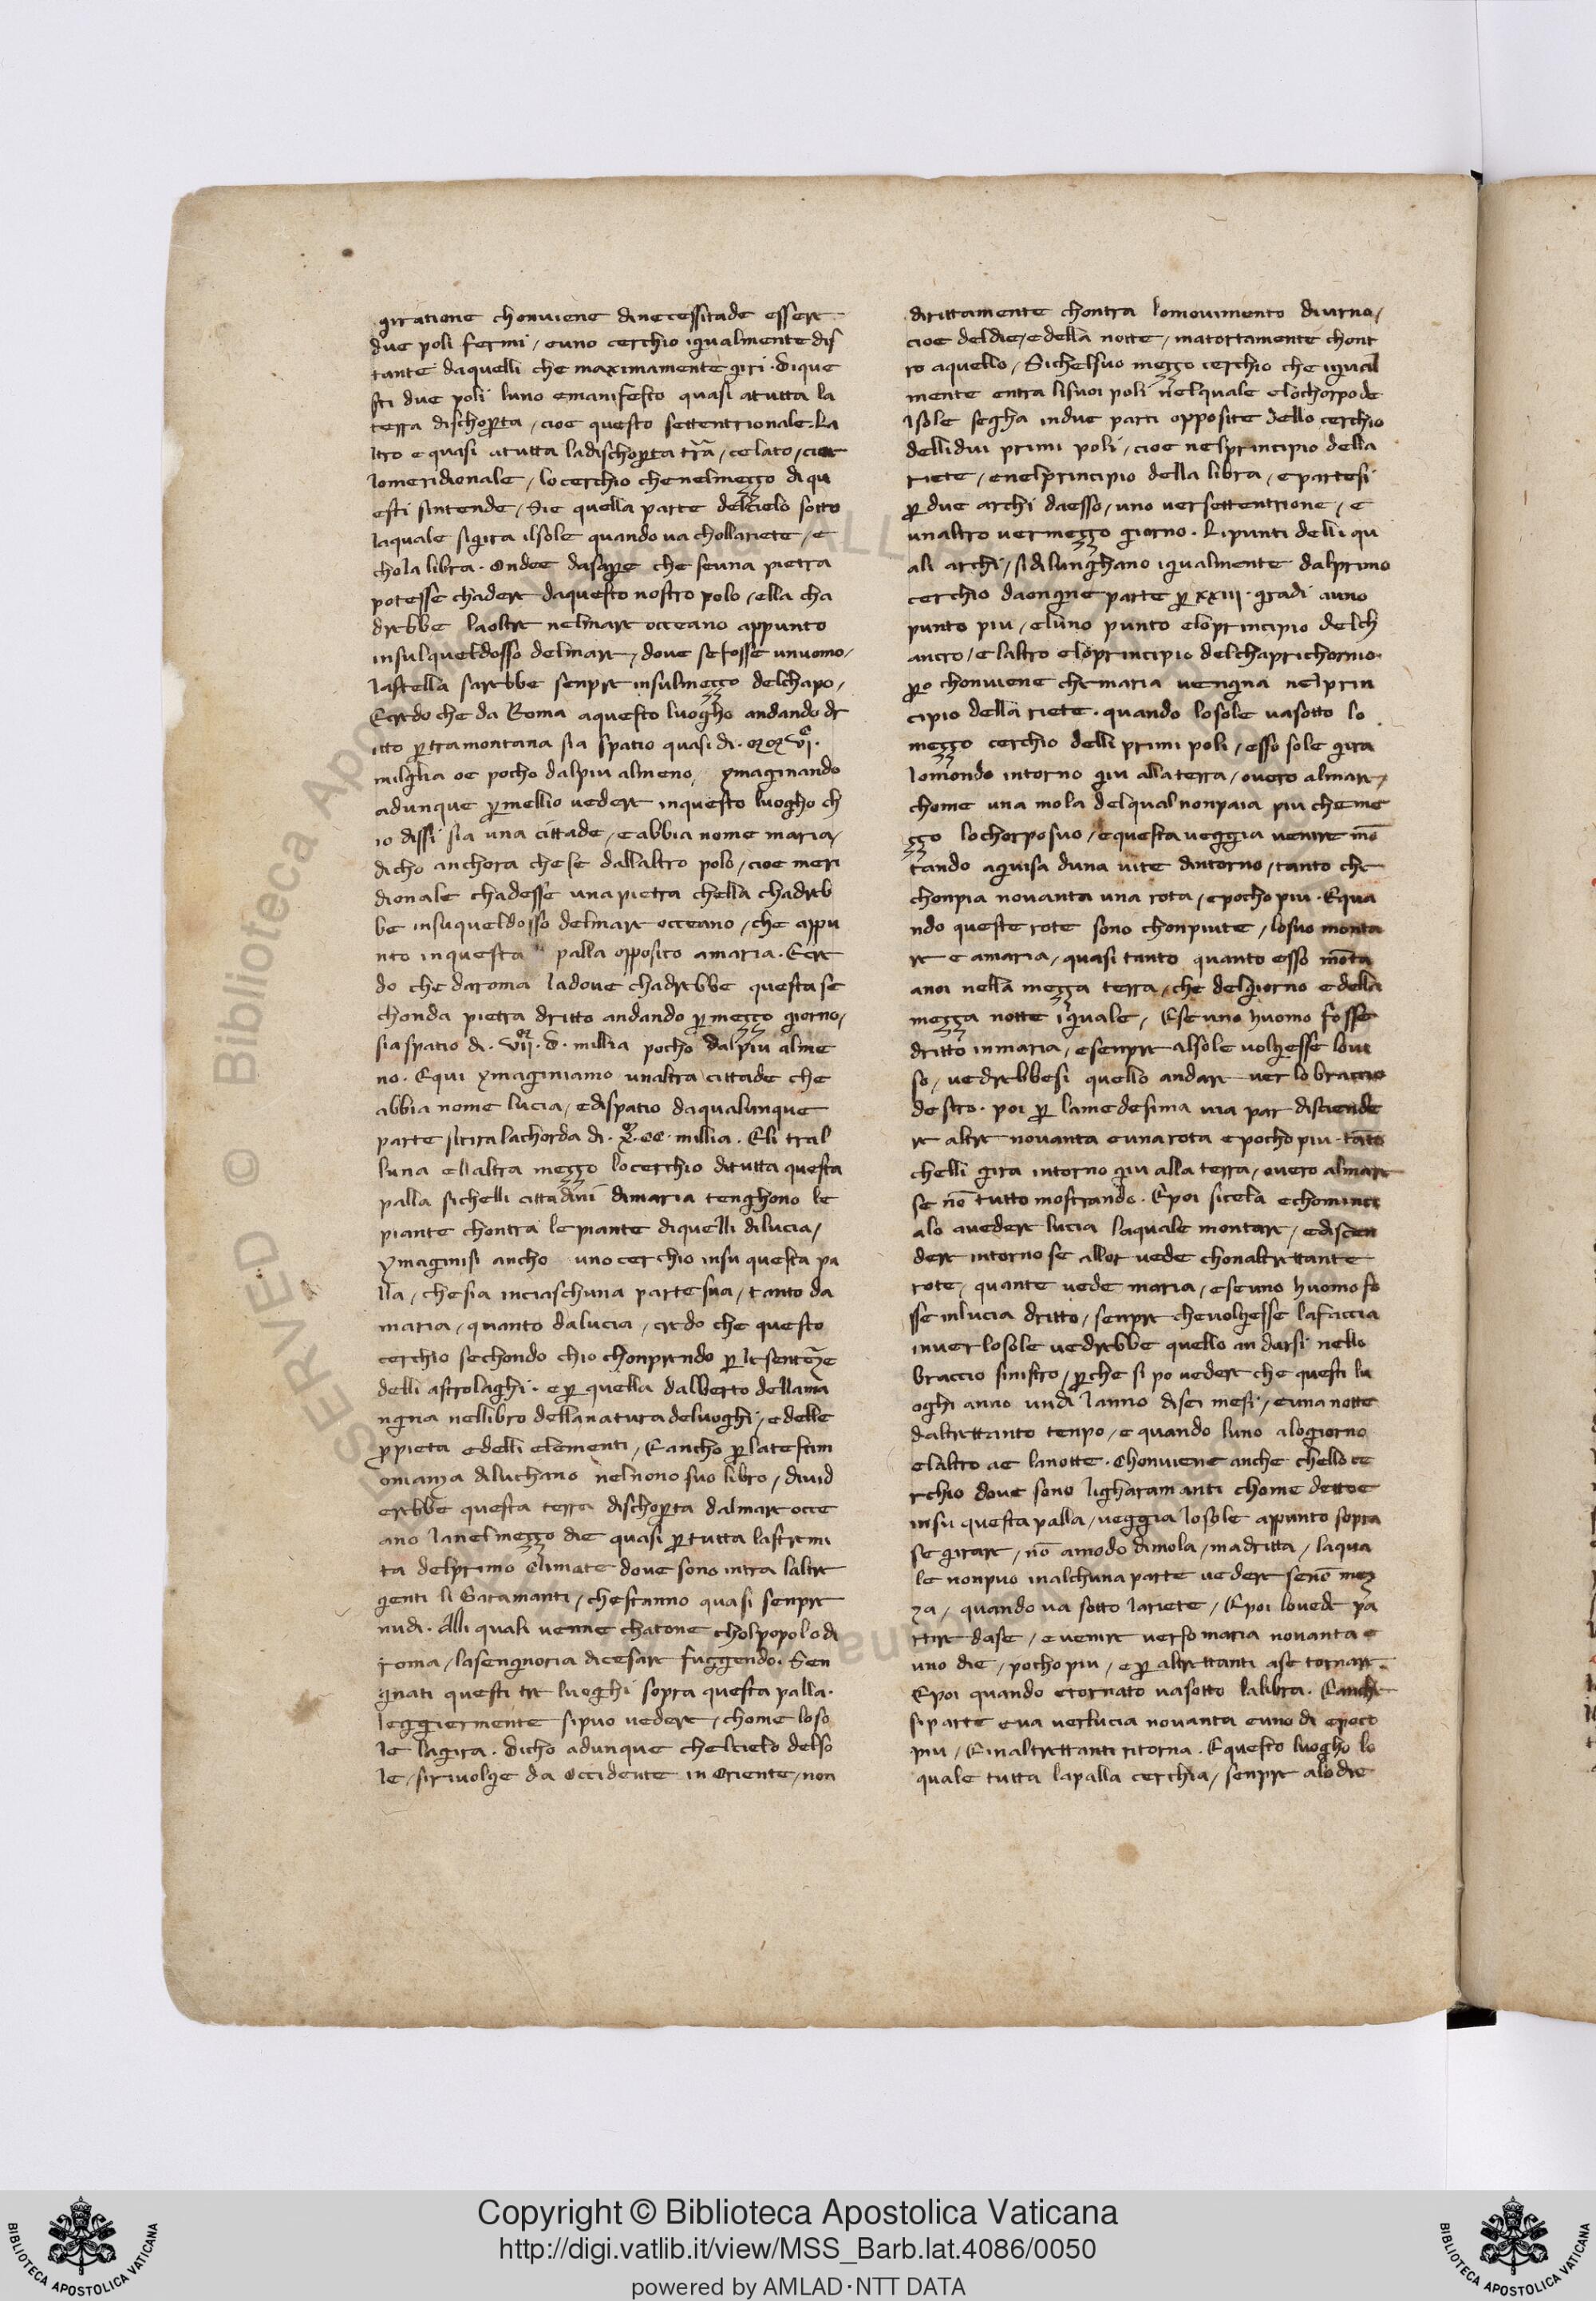 giratione chonuiene dinecessitade essere
due poli fermi / euno cerchio iqualmente dis
tante daquelli che maximamente giri . Dique
sti due poli luno emanifesto quasi atutta la
terra dischoperta / cioe questo settentrionale . La
ltro equasi atutta ladischoperta tr̄a / celato / cioe
lomeridionale / locerchio chenelmezzo diqu
esti sintende / Sie quella parte delcielo sotto
laquale sigira ilsole quando ua chollariete / e
chola libra . Ondee dasapere che seuna pietra
potesse chadere daquesto nostro polo / ella cha
drebbe laoltre nelmare occeano appunto
insulqueldosso delmare / doue sefosse unuomo /
lastella sarebbe senpre insulmezzo delchapo /
Ecredo che da Roma aquesto luogho andando dr
itto p̱ tramontana sia spatio quasi di .
milglia oe pocho dalpiu almeno / ymaginando
adunque p̱ mellio uedere inquesto luogho ch
io dissi sia una cittade / eabbia nome maria /
dicho anchora chese dallaltro polo / cioe meri
dionale chadesse unapietra chella chadreb
be insuqueldosso delmare occeano / che appu
nto inquesta palla opposito amaria . Ecre
do che daroma ladoue chadrebbe questa se
chonda pietra dritto andando p̱ mezzo giorno /
sia spatio di . vij . d . millia pocho dalpiu alme
no . Equi ymaginiamo unaltra cittade che
abbia nome lucia / edispatio daqualunque
parte sitira lachorda di . x . cc . millia . Eli tral
luna ellaltra mezzo locerchio ditutta questa
palla sichelli cittadini dimaria tenghono le
piante chontra lepiante diquelli dilucia /
ymaginisi ancho unocerchio insu questa pa
lla / chesia inciaschuna partesua / tanto da
maria / quanto dalucia / credo che questo
cerchio sechondo chio chonprendo p̱ lesentēze
delli astrolaghi . ep̱ quella dalberto dellama
ngna nellibro dellanatura deluoghi / edelle
p̱pieta edelli elementi / Eancho p̱ latestim
oniaza diluchano nelnono suo libro / diuid
erebbe questa terra dischoperta dalmare occe
ano lanelmezzo die quasi p̱ tutta lastremi
ta delprimo Climate doue sono intra laltre
genti li Garamanti / chestanno quasi senpre
nudi . Alli quali uenne chatone cholpopolo di
roma / lasengnoria dicesare fuggendo . Sen
gnati questi tre luoghi sopra questa palla .
leggiermente sipuo uedere / chome loso
le lagira . Dicho adunque chelcielo delso
le / siriuolge da Occidente in Oriente / non
dirittamente chontra lomouimento diurno /
cioe deldie / edella notte / matortamente chont
ro aquello / Sichelsuo mezzo cerchio che iqual
mente entra lisuoi poli nelquale elochorpode
lsole segha indue parti opposite dello cerchio
dellidui primi poli / cioe nelprincipio della
riete / enelprincipio della libra / epartesi
p̱ due archi daesso / uno uersettentrione / e
unaltro uermezzo giorno . Lipunti delli qu
ali archi / sidilunghano iqualmente dalprimo
cerchio daongne parte p̱ xxiij . gradi auno
punto piu / eluno punto eloprincipio delch
ancro / elaltro eloprincipio delchaprichorno .
p̱o chonuiene chemaria uengna nelprin
cipio della riete . quando losole uasotto lo
mezzo cerchio delli primi poli / esso sole gira
lomondo intorno giu allaterra / ouero almare /
chome una mola delqual nonpaia piu che me
zzo lochorposuo / equesta ueggia uenire mō
tando aguisa duna uite dintorno / tanto che
chonpia nouanta una rota / epocho piu . Equa
ndo queste rote sono chonpiute / losuo monta
re e amaria / quasi tanto quanto esso mōta
anoi nella mezza terra / che delgiorno edella
mezza notte iguale / Ese uno huomo fosse
dritto inmaria / esenpre alsole uolgesse louiso
so / uedrebbesi quello andare uer lo braccio
destro . poi p̱ lamedesima uia par disciende
re altre nouanta euna rota epocho piu . tāto
chelli gira intorno giu alla terra / ouero almare
se nō tutto mostrando . Epoi sicela echominci
alo auedere lucia laquale montare / ediscen
dere intorno se allor uede chonaltrettante
rote / quante uede maria / eseuno huomo fo
sse inlucia dritto / senpre cheuolgesse lafaccia
inuer losole uedrebbe quello andarsi nello
braccio sinistro / p̱che si po uedere che questi lu
oghi anno undi lanno disei mesi / euna notte
daltrettanto tenpo / e quando luno alogiorno
elaltro ae lanotte . Chonuiene anche chelloce
rchio doue sono ligharamanti chome dettoe
insu questa palla / ueggia losole appunto sopra
se girare / nō amodo dimola / madritta / laqua
le nonpuo inalchuna parte uedere senō mez
za / quando ua sotto lariete / Epoi louede pa
rtire dase / euenire uerso maria nouanta e
uno die / pocho piu / ep̱ altrettanti ase tornare .
Epoi quando etornato uasotto lalibra . Eanche
siparte eua uerlucia nouanta euno di epoco
piu / Einaltrettanti ritorna . Equesto luogho lo
quale tutta lapalla cerchia / senpre alodie
Copyright © Biblioteca Apostolica Vaticana
http://digi.vatlib.it/view/MSS_Barb.lat.4086/0050
powered by AMLAD·NTT DATA
BIBLIOTECA APOSTOLICA VATICANA
BIBLIOTECA APOSTOLICA VATICANA